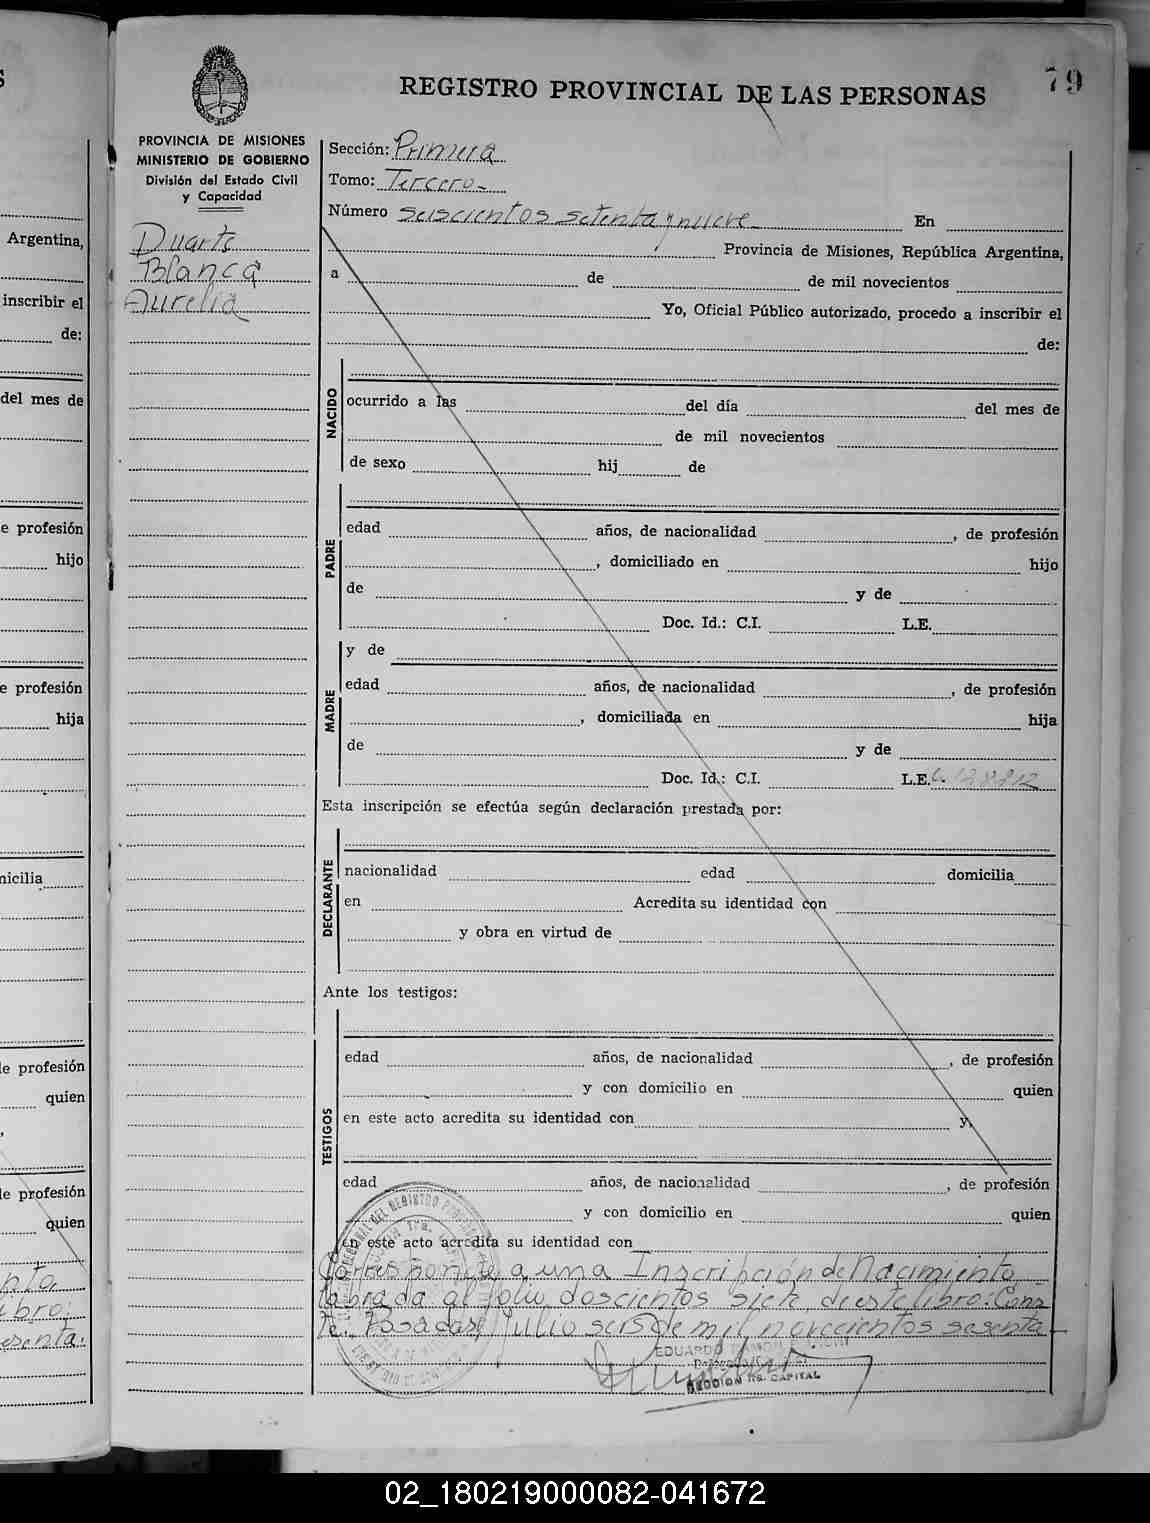 REGISTRO PROVINCIAL DE LAS PERSONAS
79
PROVINCIA DE MISIONES
MINISTERIO DE GOBIERNO
División del Estado Civil
y Capacidad
Duarte
Blanca
Aurelia
Sección: Primera
Tomo: Tercero
Número seiscientos setenta y nueve En
Provincia de Misiones, República Argentina,
a de de mil novecientos
Yo, Oficial Público autorizado, procedo a inscribir el
de:
NACIDO
ocurrido a las del día del mes de
de mil novecientos
de sexo hij de
PADRE
edad años, de nacionalidad , de profesión
, domiciliado en hijo
de y de
Doc. Id.: C.I. L.E.
MADRE
y de
edad años, de nacionalidad , de profesión
, domiciliada en hija
de y de
Doc. Id.: C.I. L.E.
Esta inscripción se efectúa según declaración prestada por:
DECLARANTE
nacionalidad edad domicilia
en Acredita su identidad con
y obra en virtud de
Ante los testigos:
TESTIGOS
edad años, de nacionalidad , de profesión
y con domicilio en quien
en este acto acredita su identidad con y,
edad años, de nacionalidad , de profesión
y con domicilio en quien
en este acto acredita su identidad con
Corresponde a una Inscripción de Nacimiento
labrada al folio doscientos siete de este libro: Cons
te. Posadas, Julio seis de mil novecientos sesenta
EDUARDO
SECCION 1ra. CAPITAL
Argentina,
inscribir el
de:
del mes de
e profesión
hijo
e profesión
hija
micilia
de profesión
quien
de profesión
quien
02_180219000082-041672